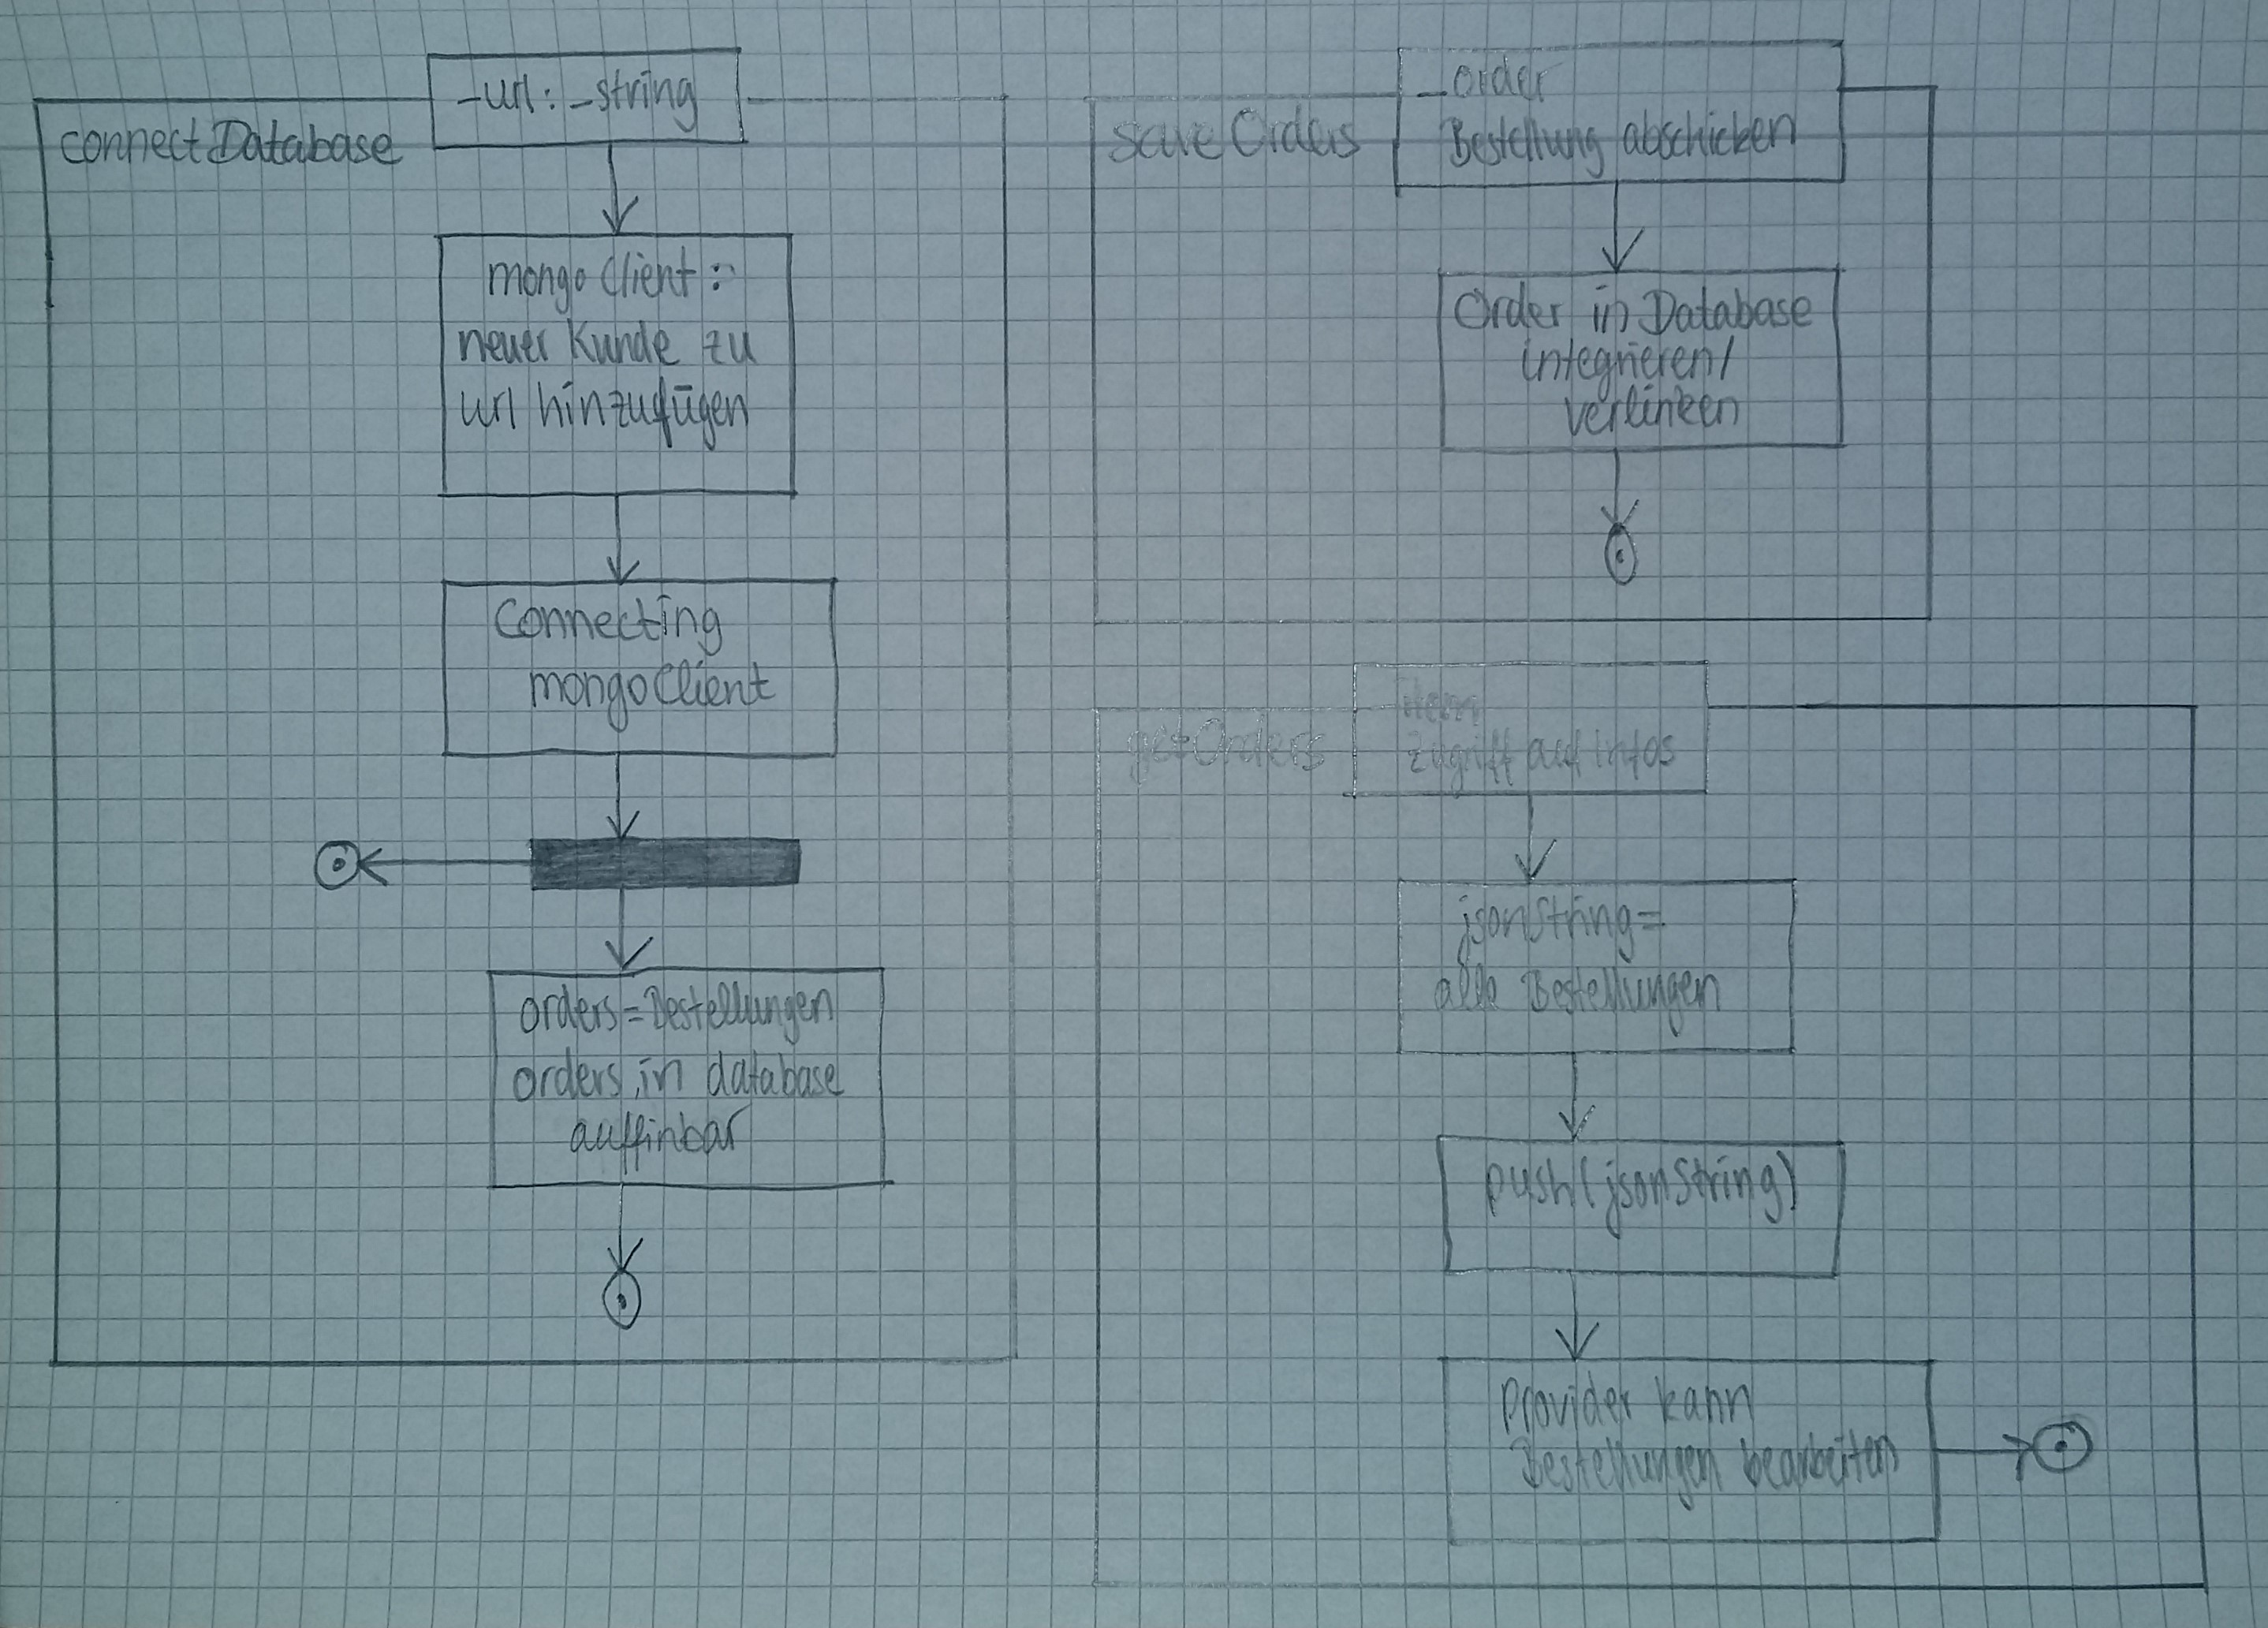 connectDatabase
-url: _string
mongoClient:
neuer Kunde zu
url hinzufügen
Connecting
mongoClient
orders=Bestellungen
orders in database
auffinbar
saveOrders
_order
Bestellung abschicken
Order in Database
integrieren/
verlinken
getOrders
Zugriff auf Infos
jsonString=
alle Bestellungen
push(jsonString)
Provider kann
Bestellungen bearbeiten